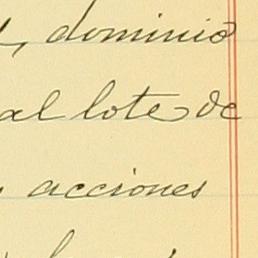 dominio
al lote de
acciones